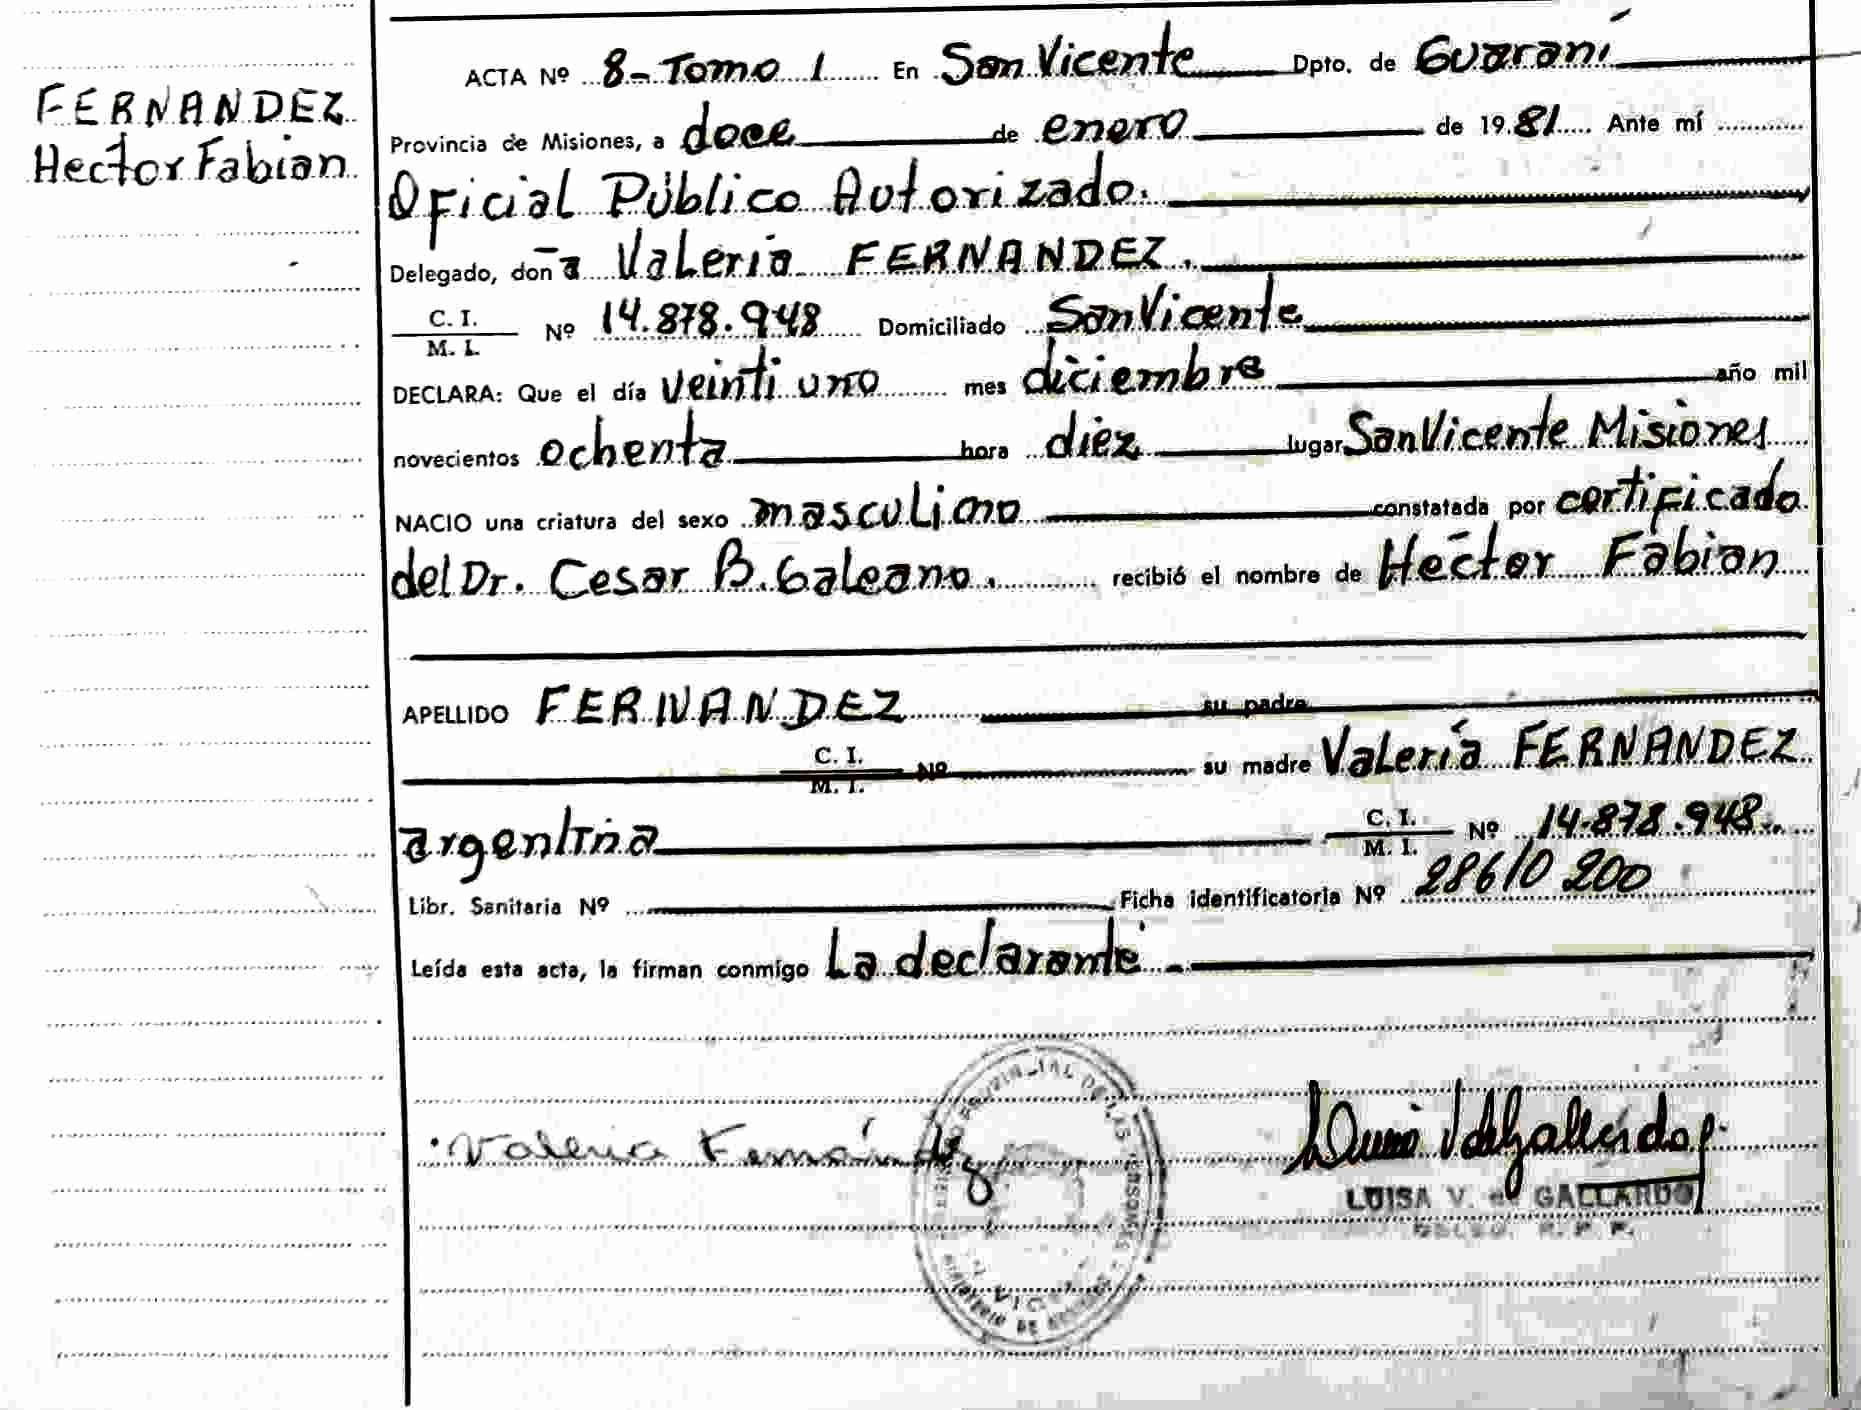 FERNANDEZ
Hector Fabian
ACTA Nº 8- Tomo 1 En San Vicente Dpto. de Guaraní
Provincia de Misiones, a doce de enero de 1981 Ante mí
Oficial Público Autorizado.
Delegado, don a Valeria FERNANDEZ.
C. I.
M. I. Nº 14.878.948 Domiciliado San Vicente
DECLARA: Que el día veinti uno mes diciembre año mil
novecientos ochenta hora diez lugar San Vicente Misiones
NACIO una criatura del sexo masculino constatada por certificado
del Dr. Cesar B. Galeano. recibió el nombre de Hector Fabian
APELLIDO FERNANDEZ su padre
C. I.
M. I. Nº su madre Valeria FERNANDEZ
argentina C. I.
M. I. Nº 14.878.948
Libr. Sanitaria Nº Ficha identificatoria Nº 28610 200
Leída esta acta, la firman conmigo La declarante
Valeria Fernández
LUISA V. de GALLARDO